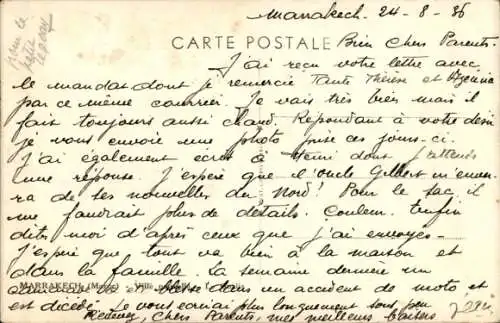 Marrakech. 24-8-36
pour le petit
CARTE POSTALE
Bien Chers Parents.
J'ai reçu votre lettre avec
le mandat dont je remercie Tante Thérèse et
par ce même courrier. Je vais très bien mais il
fait toujours aussi chaud. Répondant à votre désir
je vous envoie une photo prise ces jours-ci.
J'ai également écrit à Henri dont j'attends
une réponse. J'espère que l'oncle Gilbert m'enver-
ra de ses nouvelles du Nord! Pour le sac, il
me faudrait plus de détails. Couleur. Enfin
dites moi d'après ceux que j'ai envoyés.
J'espère que tout va bien à la maison et
dans la famille. La semaine dernière un
MARRAKECH (Maroc)
dans un accident de moto et
est décédé. Je vous écrirai plus longuement sous peu
Recevez, Chers Parents, mes meilleurs baisers